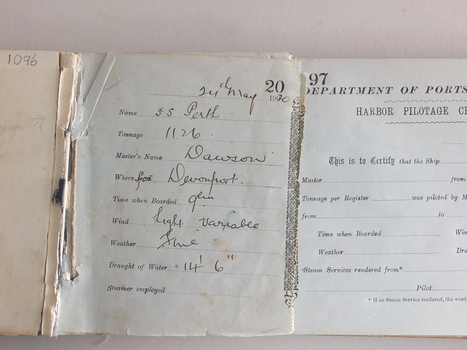 1096
20
24th May 1910
Name SS Perth
Tonnage 1126
Master's Name Dawson
Where from Devonport
Time when Boarded
Wind light variable
Weather Fine
Draught of Water 14' 6"
Steamer employed
97
DEPARTMENT OF PORTS
HARBOR PILOTAGE CE
This is to Certify that the Ship
Master from
Tonnage per Register was piloted by M
from to
Time when Boarded Win
Weather Dra
*Steam Services rendered from*
Pilot.
* If no Steam Service rendered, the word